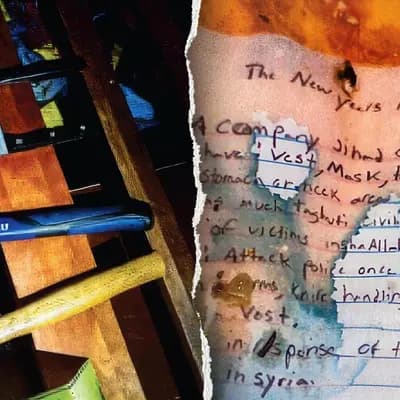 U
The New
Years
A Company Jihad
have Vest, Mask,
Stomach or neck area
much taghuti civil
of victims inshaAllah
Attack police once
arms, knife handling
Vest.
in response of t
in syria.